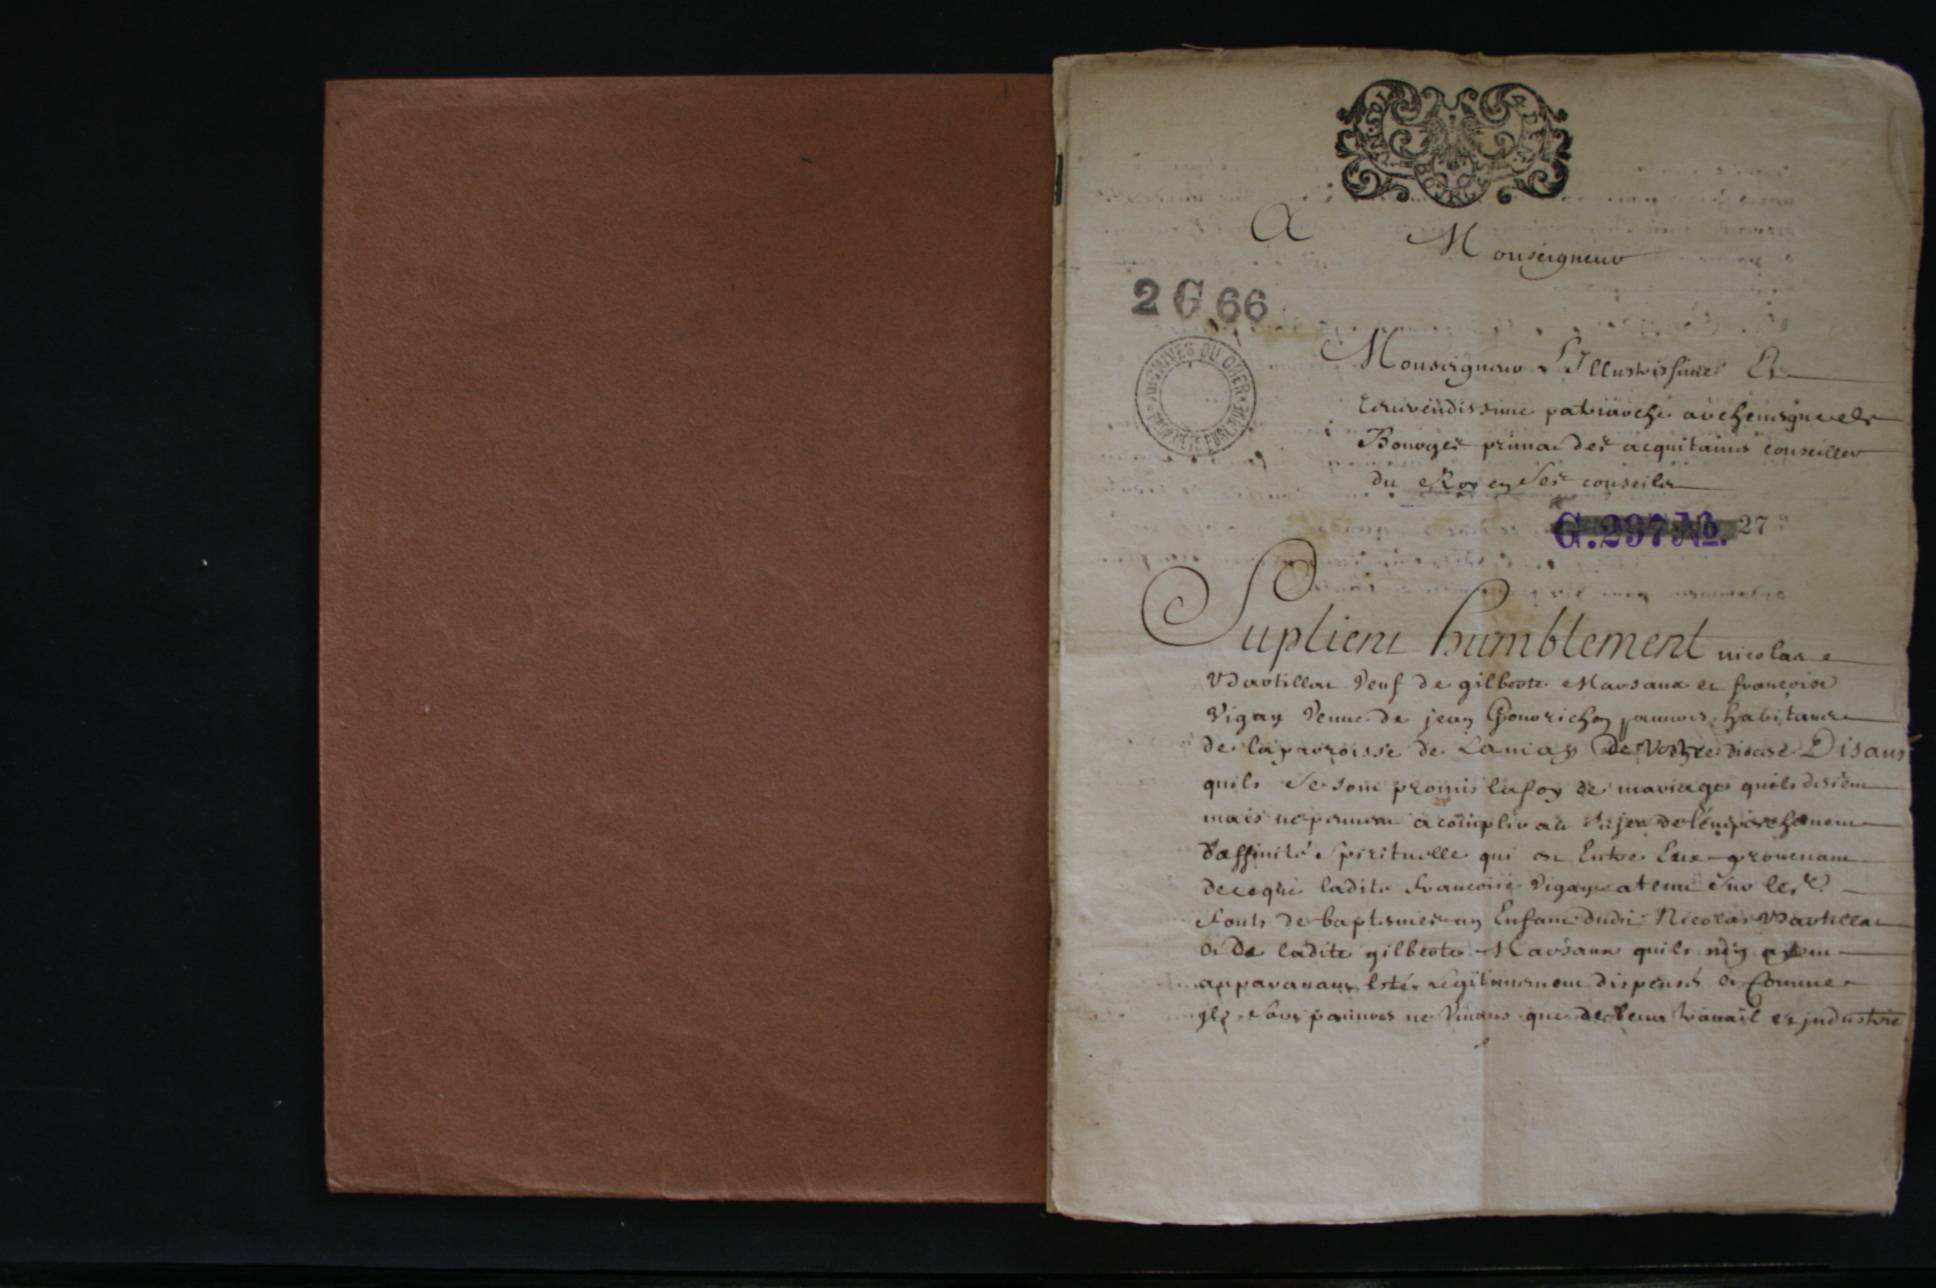 A Monseigneur
2 G 66
ARCHIVES DU CHER
Monseigneur L'Illustrissime Et
Reuerendissime patriarche archeuesque de
Bourges primat des acquitaines conseiller
du Roy en Ses conseils
G.297 No. 27
Suplient humblement nicolas
Vdartillat Veuf de gilberte Marsaux et francoise
Vigay Veuue de jean Gouvrichon pauures habitans
de la parroisse de Lanias De Vostre diocese Disans
quils Se sont promis la foy de mariage quils desirent
mais ne peuuent acomplir au Sujet de l'empeschement
d'affinité Spirituelle qui est Entre Eux prouenant
de ce que ladite francoise Vigay a tenu Sur les
fonts de baptesmes un Enfant dudit Nicolas Vdartillat
et De ladite gilberte Marsaux quils nen ayent
apparauant Estés legitimement dispensés et Comme
ils Sont pauures ne Viuans que de leur trauail et industrie